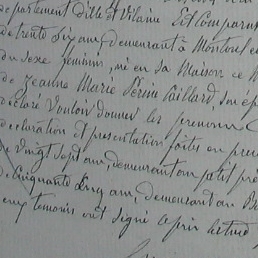 département d'Ille et Vilaine Est Comparu
de trente six ans, demeurant à Montorel
du sexe féminin, né en sa Maison ce
de Jeanne Marie Perine Gaillard, son ép
déclaré Vouloir donner les prenoms
déclaration et présentation faites en pre
de Vingt sept ans, demeurant au petit pré
de Cinquante Cinq ans, demeurant au
temoins ont signé après